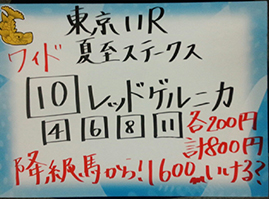 東京11R
ワイド 夏至ステークス
10 レッドゲルニカ
4 6 8 11 各200円
計800円
降級馬から!1600いける?